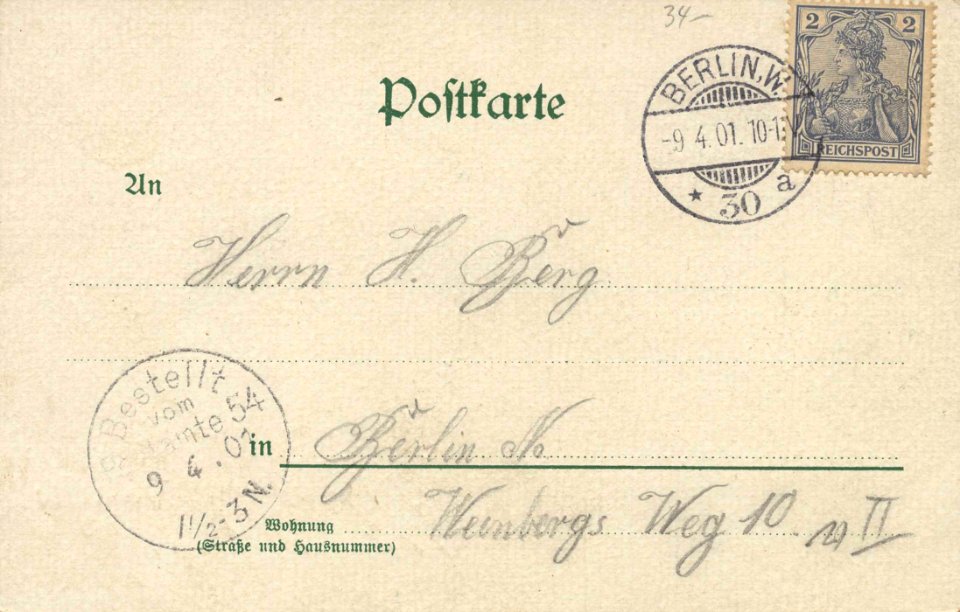 34-
2 2
REICHSPOST
BERLIN, W.
-9 4.01. 10-1
* 30 a
Postkarte
An
Herrn H. Berg
Bestellt
vom
Postamte 54
9 4. 01
1 1/2-3 N.
in Berlin N
Weinbergs Weg 10 II
Wohnung
(Straße und Hausnummer)